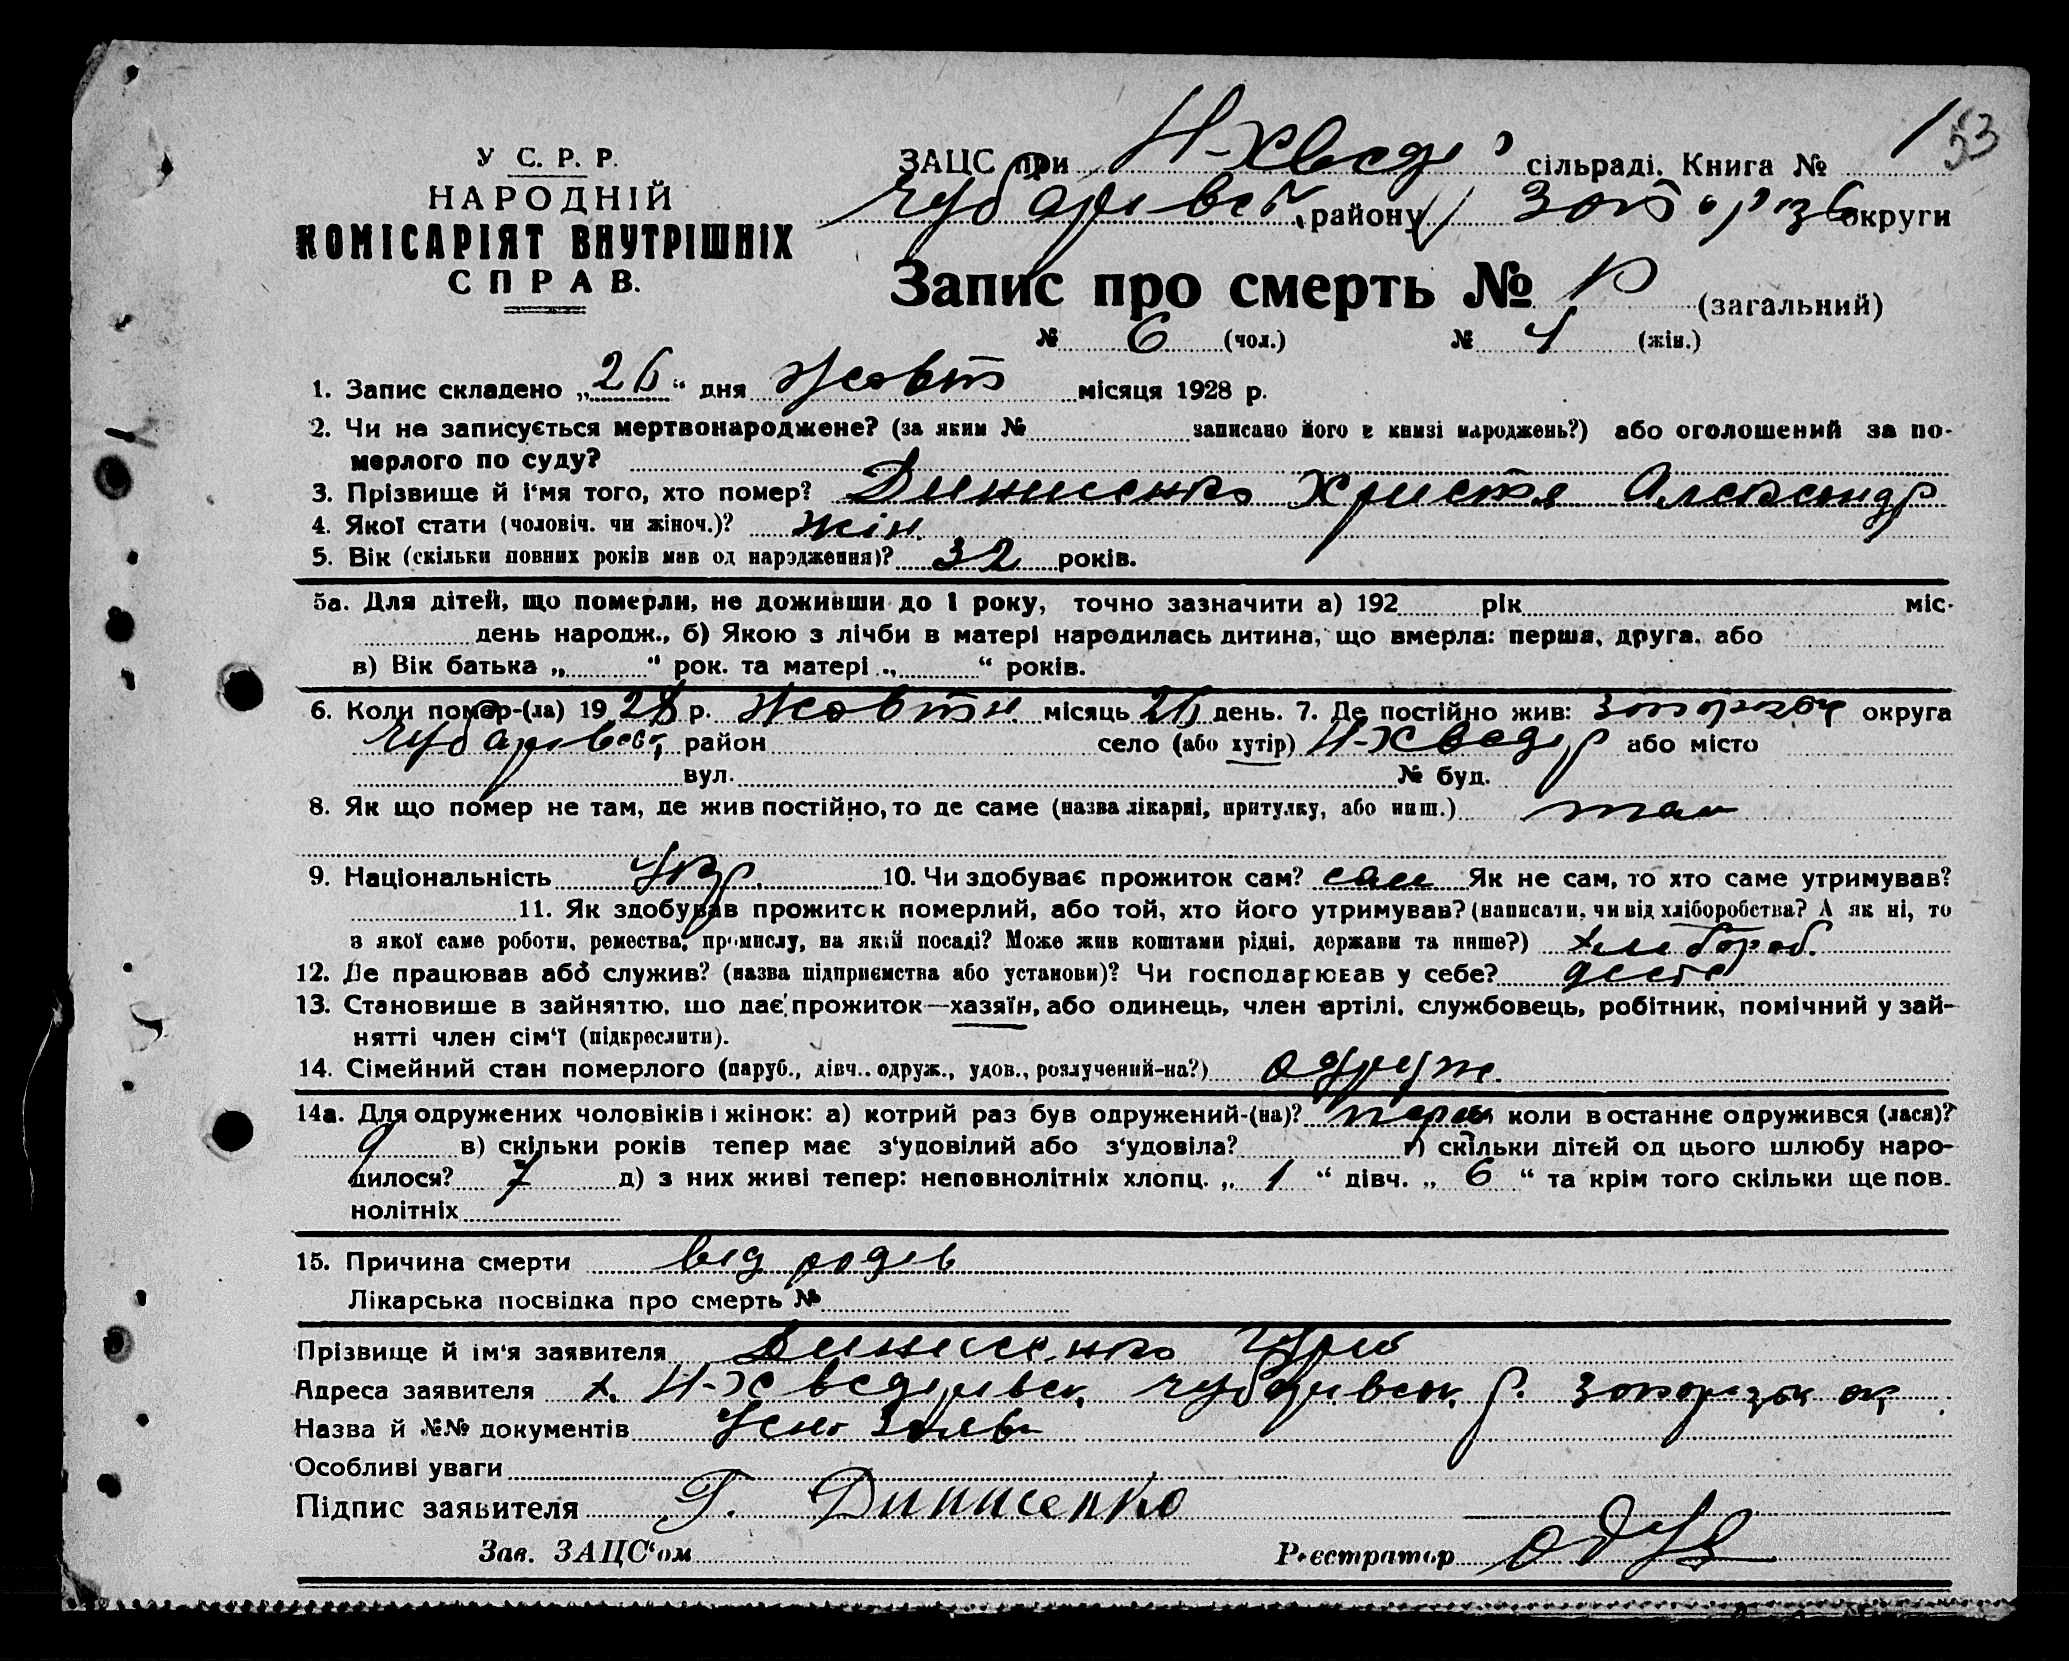 53
У С. Р. Р.
НАРОДНІЙ
КОМІСАРІЯТ ВНУТРІШНІХ
СПРАВ.
ЗАЦС при Н-Хведр сільраді. Книга № 1
Чубарівськ району Запоріз округи
Запис про смерть № 10 (загальний)
№ 6 (чол.) № 4 (жін.)
1. Запис складено „26“ дня Жовт місяця 1928 р.
2. Чи не записується мертвонароджене? (за яким № записано його в книзі народжень?) або оголошений за по-
мерлого по суду?
3. Прізвище й і'мя того, хто помер? Динисенко Христя Александр
4. Якої стати (чоловіч. чи жіноч.)? жін.
5. Вік (скільки повних років мав од народження)? 32 років.
5а. Для дітей, що померли, не доживши до 1 року, точно зазначити а) 192 рік міс.
день народж., б) Якою з лічби в матері народилась дитина, що вмерла: перша, друга, або
в) Вік батька „ “ рок. та матері „ “ років.
6. Коли помер-(ла) 19 28 р. Жовтн. місяць 26 день. 7. Де постійно жив: Запорізьк округа
Чубарівськ район село (або хутір) Н-Хведір або місто
вул. № буд.
8. Як що помер не там, де жив постійно, то де саме (назва лікарні, притулку, або инш.) там
9. Національність Укр. 10. Чи здобуває прожиток сам? сам Як не сам, то хто саме утримував?
11. Як здобував прожиток померлий, або той, хто його утримував? (написати, чи від хліборобства? А як ні, то
з якої саме роботи, ремества, промислу, на якій посаді? Може жив коштами рідні, держави та инше?) хлібороб.
12. Де працював або служив? (назва підприємства або установи)? Чи господарював у себе?
13. Становище в зайняттю, що дає прожиток—хазяїн, або одинець, член артілі, службовець, робітник, помічний у зай-
нятті член сім'ї (підкреслити).
14. Сімейний стан померлого (паруб., дівч., одруж., удов., розлучений-на?) одруж.
14а. Для одружених чоловіків і жінок: а) котрий раз був одружений-(на)? перш коли востаннє одружився (лася)?
в) скільки років тепер має з'уповілий або з'удовіла? г) скільки дітей од цього шлюбу наро-
дилося? 7 д) з них живі тепер: неповнолітніх хлопц. „ 1 “ дівч. „ 6 “ та крім того скільки ще пов.
нолітніх
15. Причина смерти від родів
Лікарська посвідка про смерть №
Прізвище й ім'я заявителя Динисенко
Адреса заявителя х. Н-Хведірівськ, Чубарівськ. р. Запорізьк ок
Назва й №№ документів Усно Заява
Особливі уваги
Підпис заявителя Г. Динисенко
Зав. ЗАЦС'ом Реєстратор